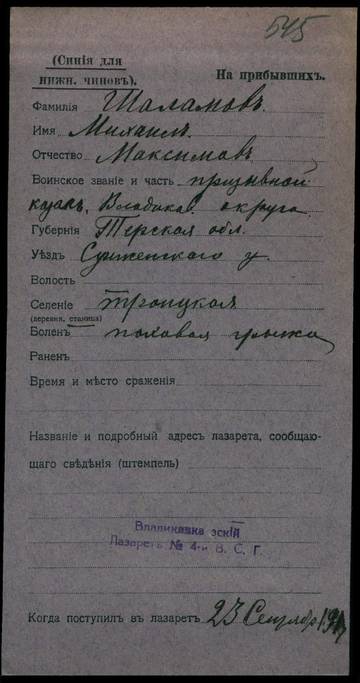 545
(Синія для
нижн. чиновъ).
На прибывшихъ.
Фамилія Шаламовъ
Имя Михаилъ
Отчество Максимовъ
Воинское званіе и часть призывной
казакъ, Владикав. округа
Губернія Терская обл.
Уѣздъ Сунженскаго у.
Волость
Селеніе Троицкая
(деревня, станица)
Боленъ паховая грыжа
Раненъ
Время и мѣсто сраженія
Названіе и подробный адресъ лазарета, сообщаю-
щаго свѣдѣнія (штемпель)
Владикавка зскій
Лазаретъ № 4-й В. С. Г.
Когда поступилъ въ лазаретъ 23 Сентября